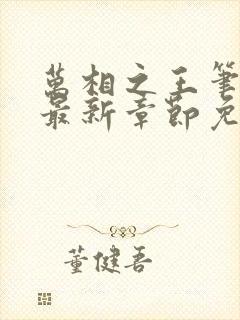 萬相之王筆
最新章節免
董健吾